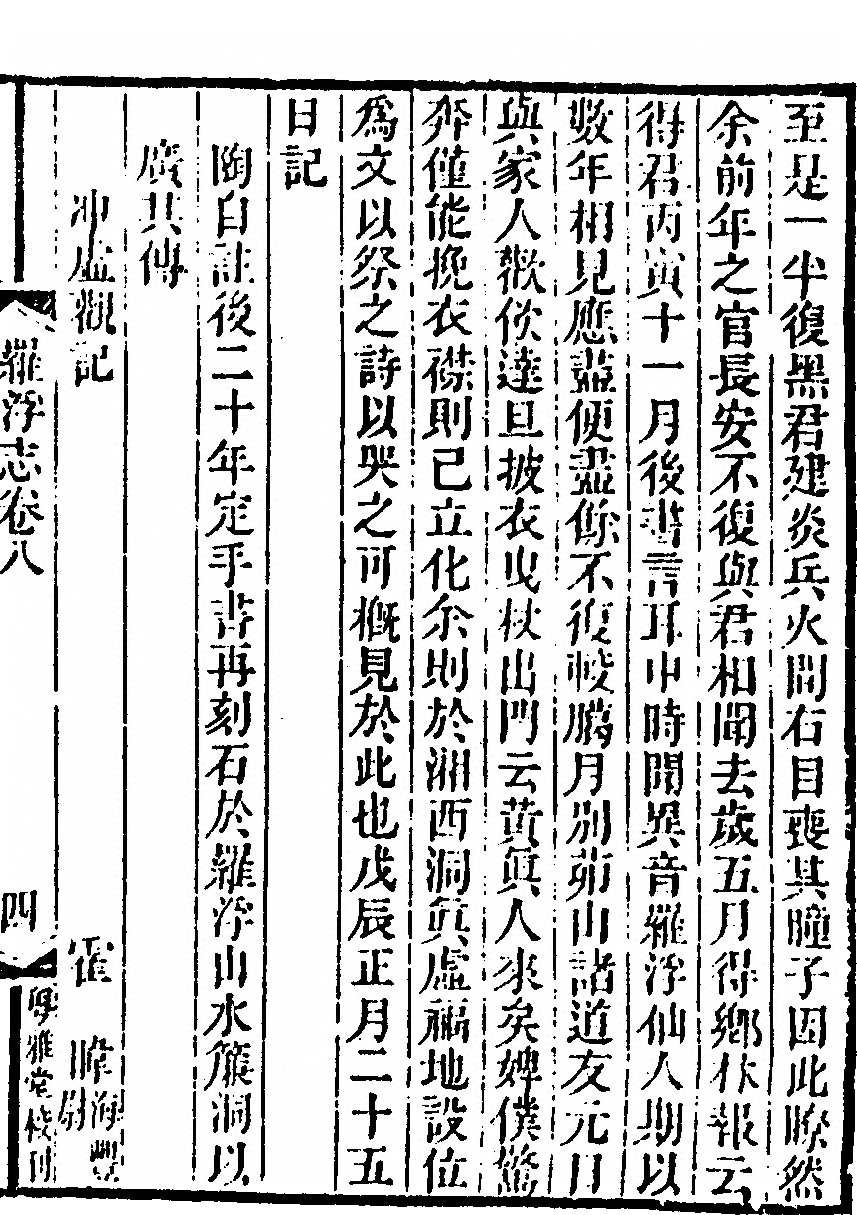 至是一半復黑君建炎兵火間右目喪其瞳子因此睽然
余前年之官長安不復與君相聞去歲五月得鄉人報云
得君丙寅十一月後書言耳中時聞異音羅浮仙人期以
數年相見應盡便盡餘不復較臘月別茆山諸道友元日
與家人歡飲達旦披衣曳杖出門云黃眞人來矣婢僕驚
奔僅能挽衣襟則已立化余則於湘西洞眞虛福地設位
爲文以祭之詩以哭之可槪見於此也戊辰正月二十五
日記
陶自註後二十年定手書再刻石於羅浮山水簾洞以
廣其傳
冲虛觀記 霍暐海豐尉
羅浮志卷八 四 粵雅堂校刊